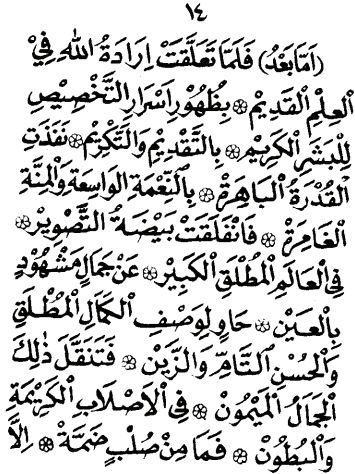 ١٤
(اَمَّا بَعْدُ) فَلَمَّا تَعَلَّقَتْ اِرَادَةُ اللهِ فِيْ
الْعِلْمِ الْقَدِيْمِ ۞ بِظُهُوْرِ اَسْرَارِ التَّخْصِيْصِ
لِلْبَشَرِ الْكَرِيْمِ ۞ بِالتَّقْدِيْمِ وَالتَّكْرِيْمِ ۞ نَفَذَتِ
الْقُدْرَةُ الْبَاهِرَةُ ۞ بِالنِّعْمَةِ الْوَاسِعَةِ وَالْمِنَّةِ
الْغَامِرَةِ ۞ فَانْفَلَقَتْ بَيْضَةُ التَّصْوِيْرِ ۞
فِي الْعَالَمِ الْمُطْلَقِ الْكَبِيْرِ ۞ عَنْ جَمَالٍ مَشْهُوْدٍ
بِالْعَيْنِ ۞ حَاوٍ لِوَصْفِ الْكَمَالِ الْمُطْلَقِ
وَالْحُسْنِ التَّامِّ وَالزَّيْنِ ۞ فَتَنَقَّلَ ذٰلِكَ
الْجَمَالُ الْمَيْمُوْنُ ۞ فِي الْاَصْلَابِ الْكَرِيْمَةِ
وَالْبُطُوْنِ ۞ فَمَا مِنْ صُلْبٍ ضَمَّهُ ۞ اِلَّا